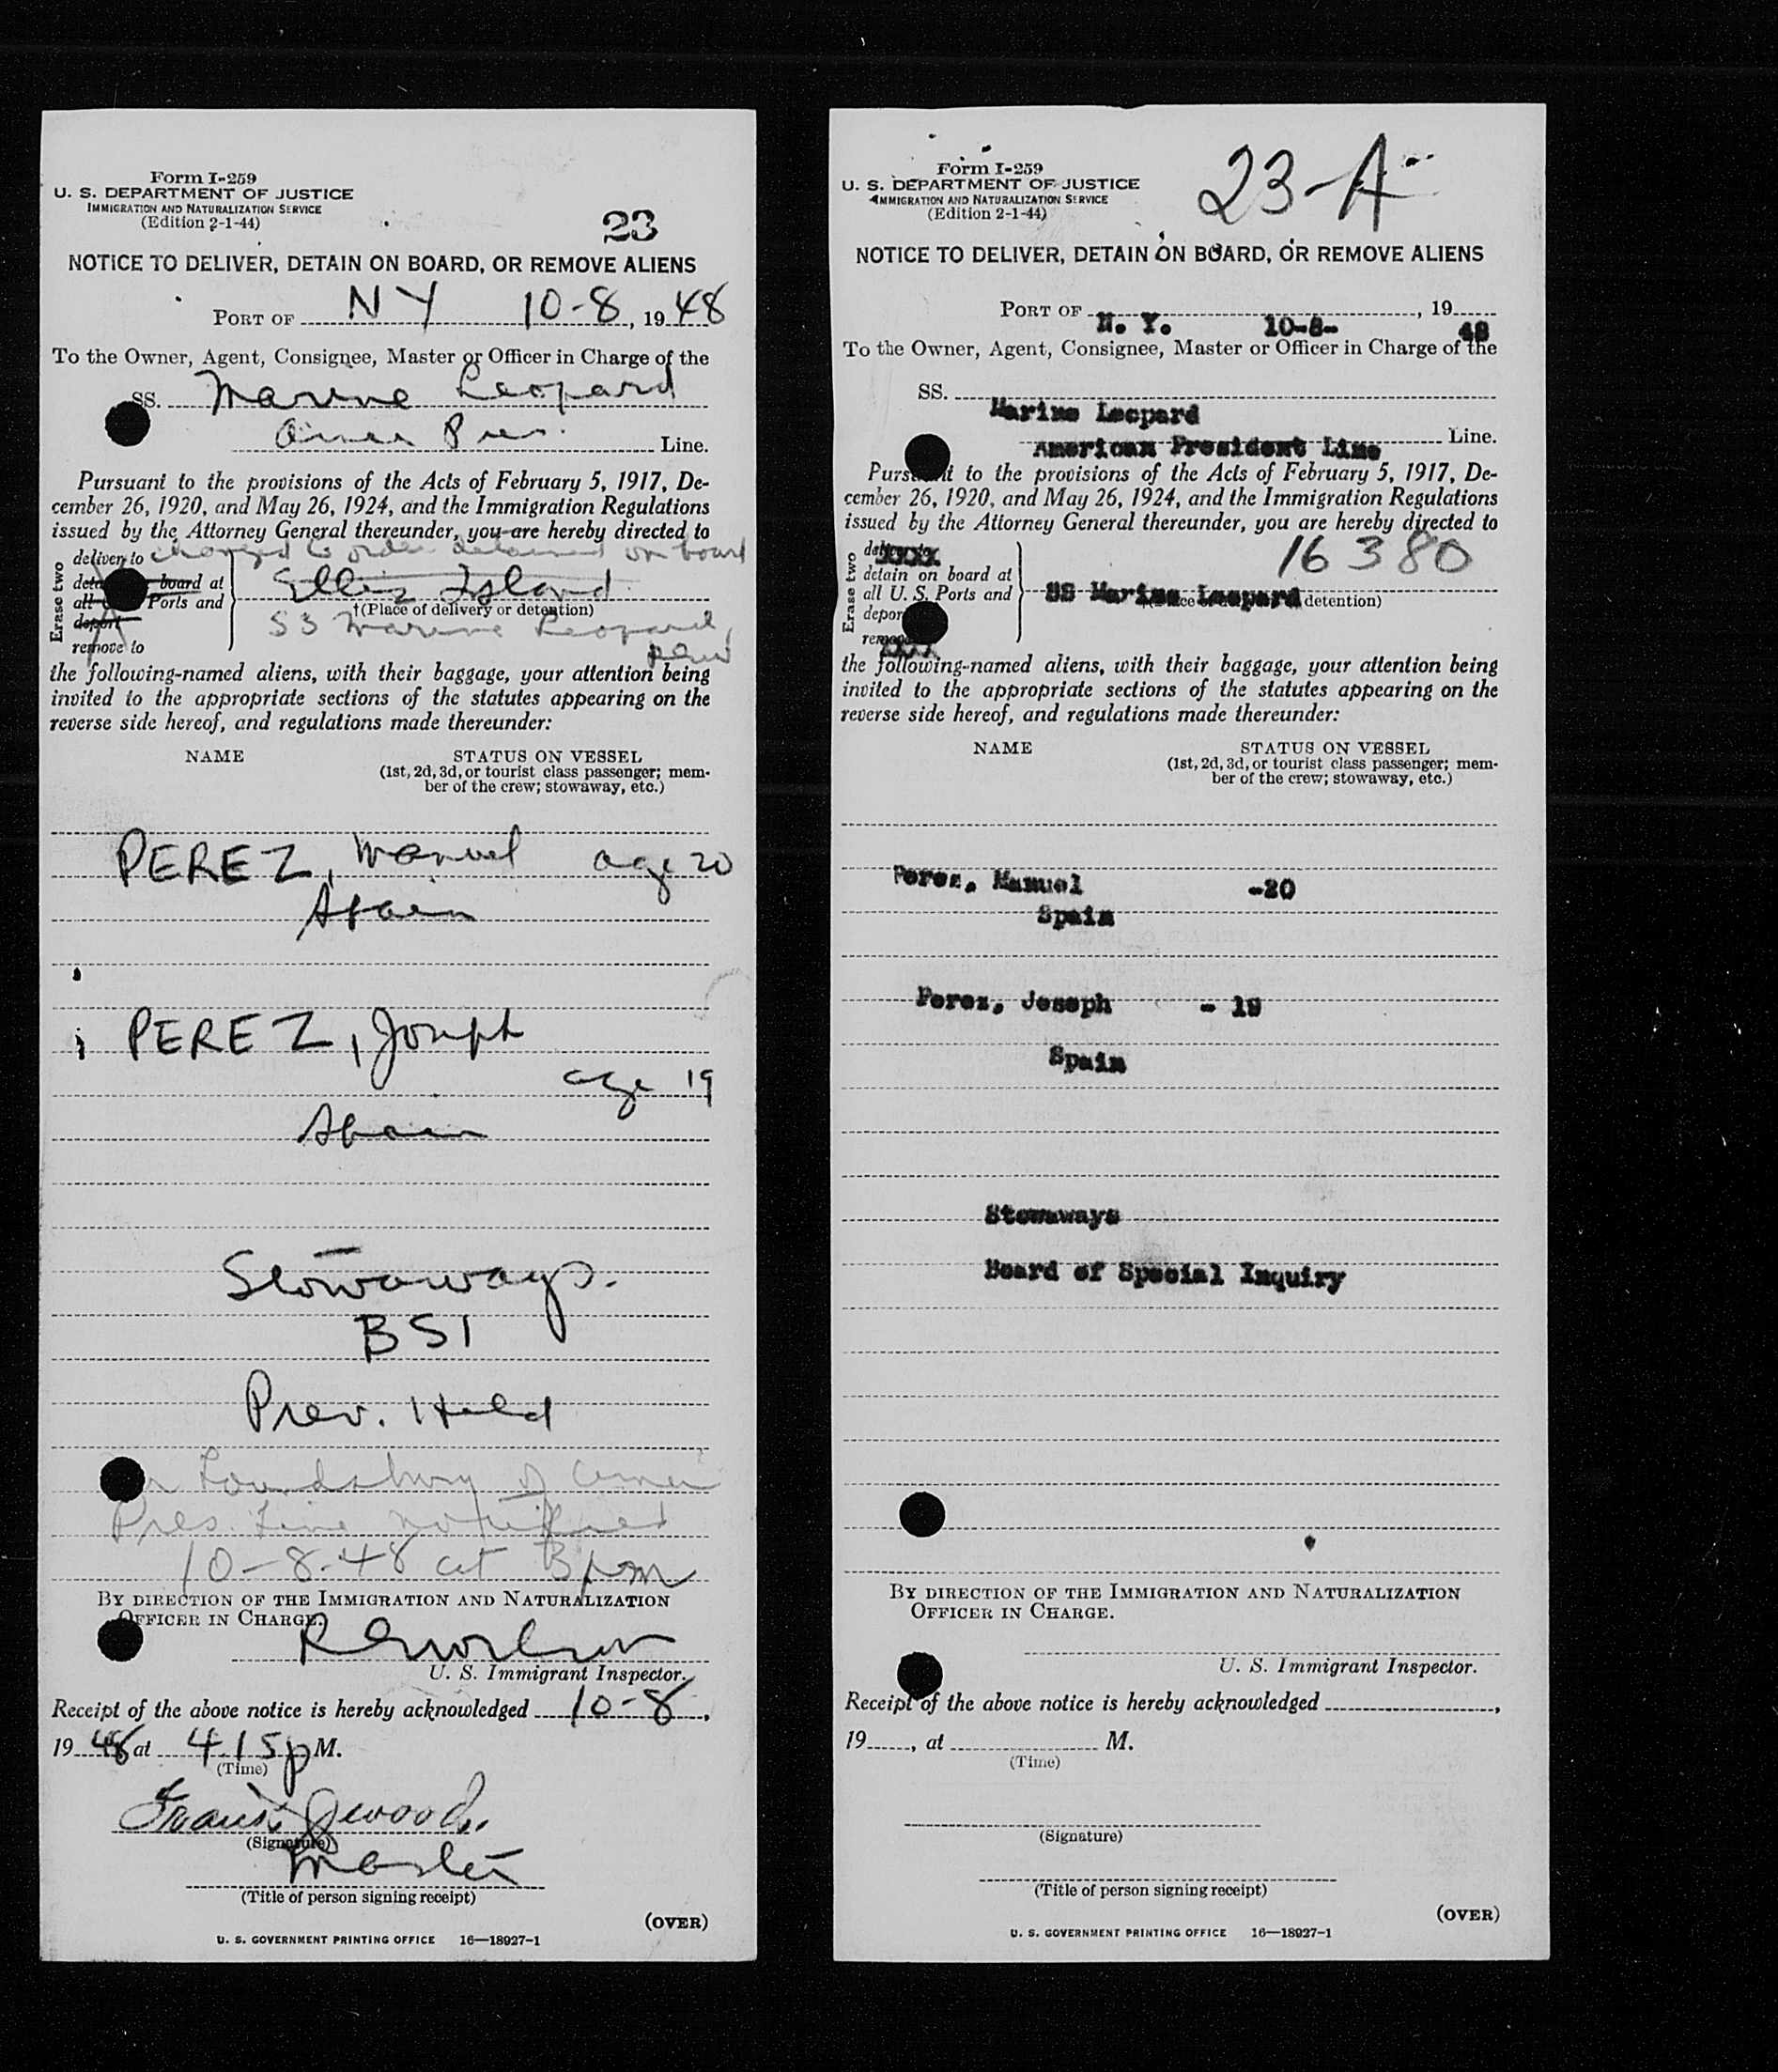 Form I-259
U. S. DEPARTMENT OF JUSTICE
IMMIGRATION AND NATURALIZATION SERVICE
(Edition 2-1-44)
23
NOTICE TO DELIVER, DETAIN ON BOARD, OR REMOVE ALIENS
PORT OF NY 10-8, 1948
To the Owner, Agent, Consignee, Master or Officer in Charge of the
SS. Marine Leopard
Amer Pres. Line.
Pursuant to the provisions of the Acts of February 5, 1917, De-
cember 26, 1920, and May 26, 1924, and the Immigration Regulations
issued by the Attorney General thereunder, you are hereby directed to
changed to order detained on board
Erase two
deliver to
board at
all Ports and
deport
remove to
Ellis Island
†(Place of delivery or detention)
SS Marine Leopard,
the following-named aliens, with their baggage, your attention being
invited to the appropriate sections of the statutes appearing on the
reverse side hereof, and regulations made thereunder:
NAME STATUS ON VESSEL
(1st, 2d, 3d, or tourist class passenger; mem-
ber of the crew; stowaway, etc.)
PEREZ, Manuel age 20
Spain
PEREZ, Joseph
age 19
Spain
Stowaways.
BSI
Prev. Held
Loundsbury of Amer
Pres. Line notified
10-8-48 at 3 pm
BY DIRECTION OF THE IMMIGRATION AND NATURALIZATION
OFFICER IN CHARGE.
U. S. Immigrant Inspector.
Receipt of the above notice is hereby acknowledged 10-8,
1948 at 4.15 p M.
(Time)
(Signature)
Master
(Title of person signing receipt)
(OVER)
U. S. GOVERNMENT PRINTING OFFICE 16—18927-1
Form I-259
U. S. DEPARTMENT OF JUSTICE
IMMIGRATION AND NATURALIZATION SERVICE
(Edition 2-1-44)
23-A
NOTICE TO DELIVER, DETAIN ON BOARD, OR REMOVE ALIENS
PORT OF N. Y. 10-8-, 1948
To the Owner, Agent, Consignee, Master or Officer in Charge of the
SS. Marine Leopard
American President Line Line.
Pursuant to the provisions of the Acts of February 5, 1917, De-
cember 26, 1920, and May 26, 1924, and the Immigration Regulations
issued by the Attorney General thereunder, you are hereby directed to
16380
Erase two
detain on board at
all U. S. Ports and
SS Marine Leopard
detention)
the following-named aliens, with their baggage, your attention being
invited to the appropriate sections of the statutes appearing on the
reverse side hereof, and regulations made thereunder:
NAME STATUS ON VESSEL
(1st, 2d, 3d, or tourist class passenger; mem-
ber of the crew; stowaway, etc.)
Perez, Manuel -20
Spain
Perez, Joseph - 19
Spain
Stowaways
Board of Special Inquiry
BY DIRECTION OF THE IMMIGRATION AND NATURALIZATION
OFFICER IN CHARGE.
U. S. Immigrant Inspector.
Receipt of the above notice is hereby acknowledged ,
19 , at M.
(Time)
(Signature)
(Title of person signing receipt)
(OVER)
U. S. GOVERNMENT PRINTING OFFICE 16—18927-1